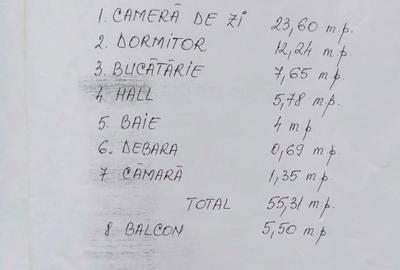 1. CAMERĂ DE ZI 23,60 m.p.
2. DORMITOR 12,24 m p.
3. BUCĂTĂRIE 7,65 m p.
4. HALL 5,78 m p.
5. BAIE 4 m p
6. DEBARA 0,69 m p
7 CĂMARĂ 1,35 m p.
TOTAL 55,31 m p.
8 BALCON 5,50 m p